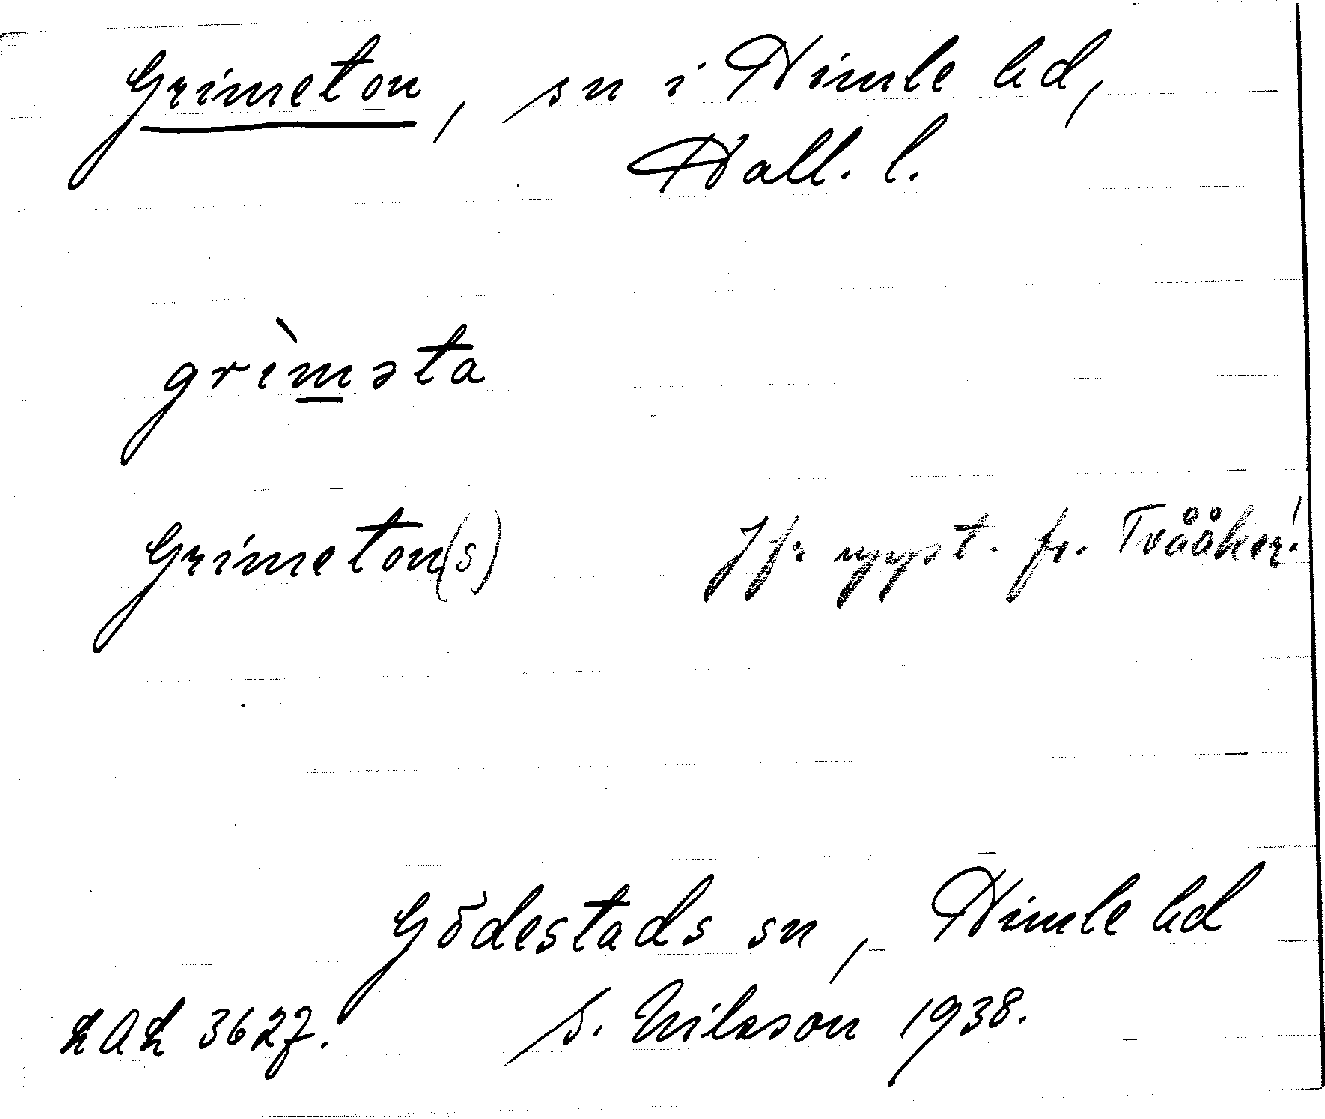 Grimeton, sn i Himle hd,
Hall. l.
grìməta
Grimeton(s) Jfr uppt. fr. Tvååker!
Gödestads sn, Himle hd
LAL 3627. S. Nilsson 1938.